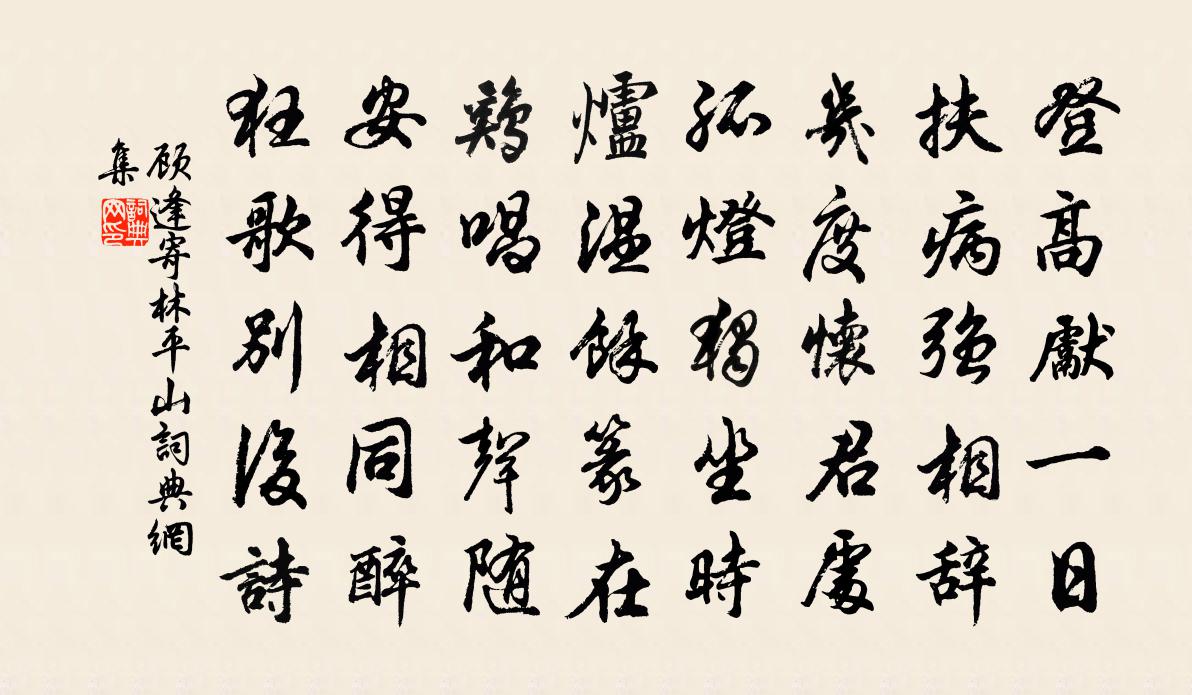 登高獻一日
扶病強相辞
幾度懷君處
孤燈獨坐時
爐温餘篆在
鷄唱和聲随
安得相同醉
狂歌別後詩
顾逢寄林平山詞典網
集
詞典
网印